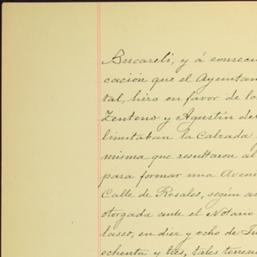 Bucareli, y á consecu
cación que el Ayuntam
tal, hizo en favor de lo
Zenteno y Agustin del
limitaban la Calzada
misma que resultaron al
para formar una Aven
Calle de Rosales, según
otorgada ante el Notario
lasco, en diez y ocho de Ju
ochenta y tres, tales terren